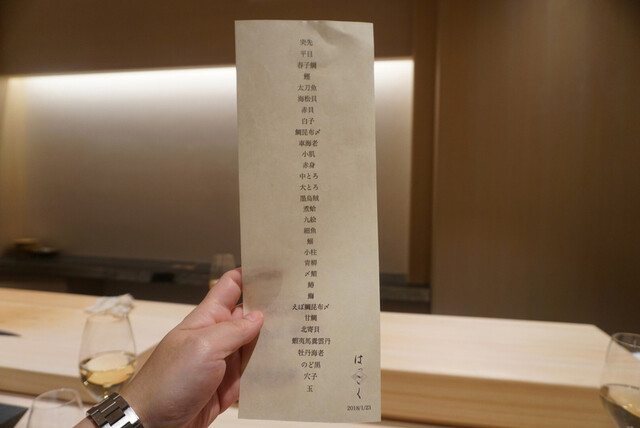 突先
平目
春子鯛
鱧
太刀魚
海松貝
赤貝
白子
鯛昆布〆
車海老
小肌
赤身
中とろ
大とろ
墨烏賊
煮蛤
九絵
細魚
小柱
青柳
〆鯖
えぼ鯛昆布〆
甘鯛
北寄貝
蝦夷馬糞雲丹
牡丹海老
のど黒
穴子
玉
はっこく
2018/1/23